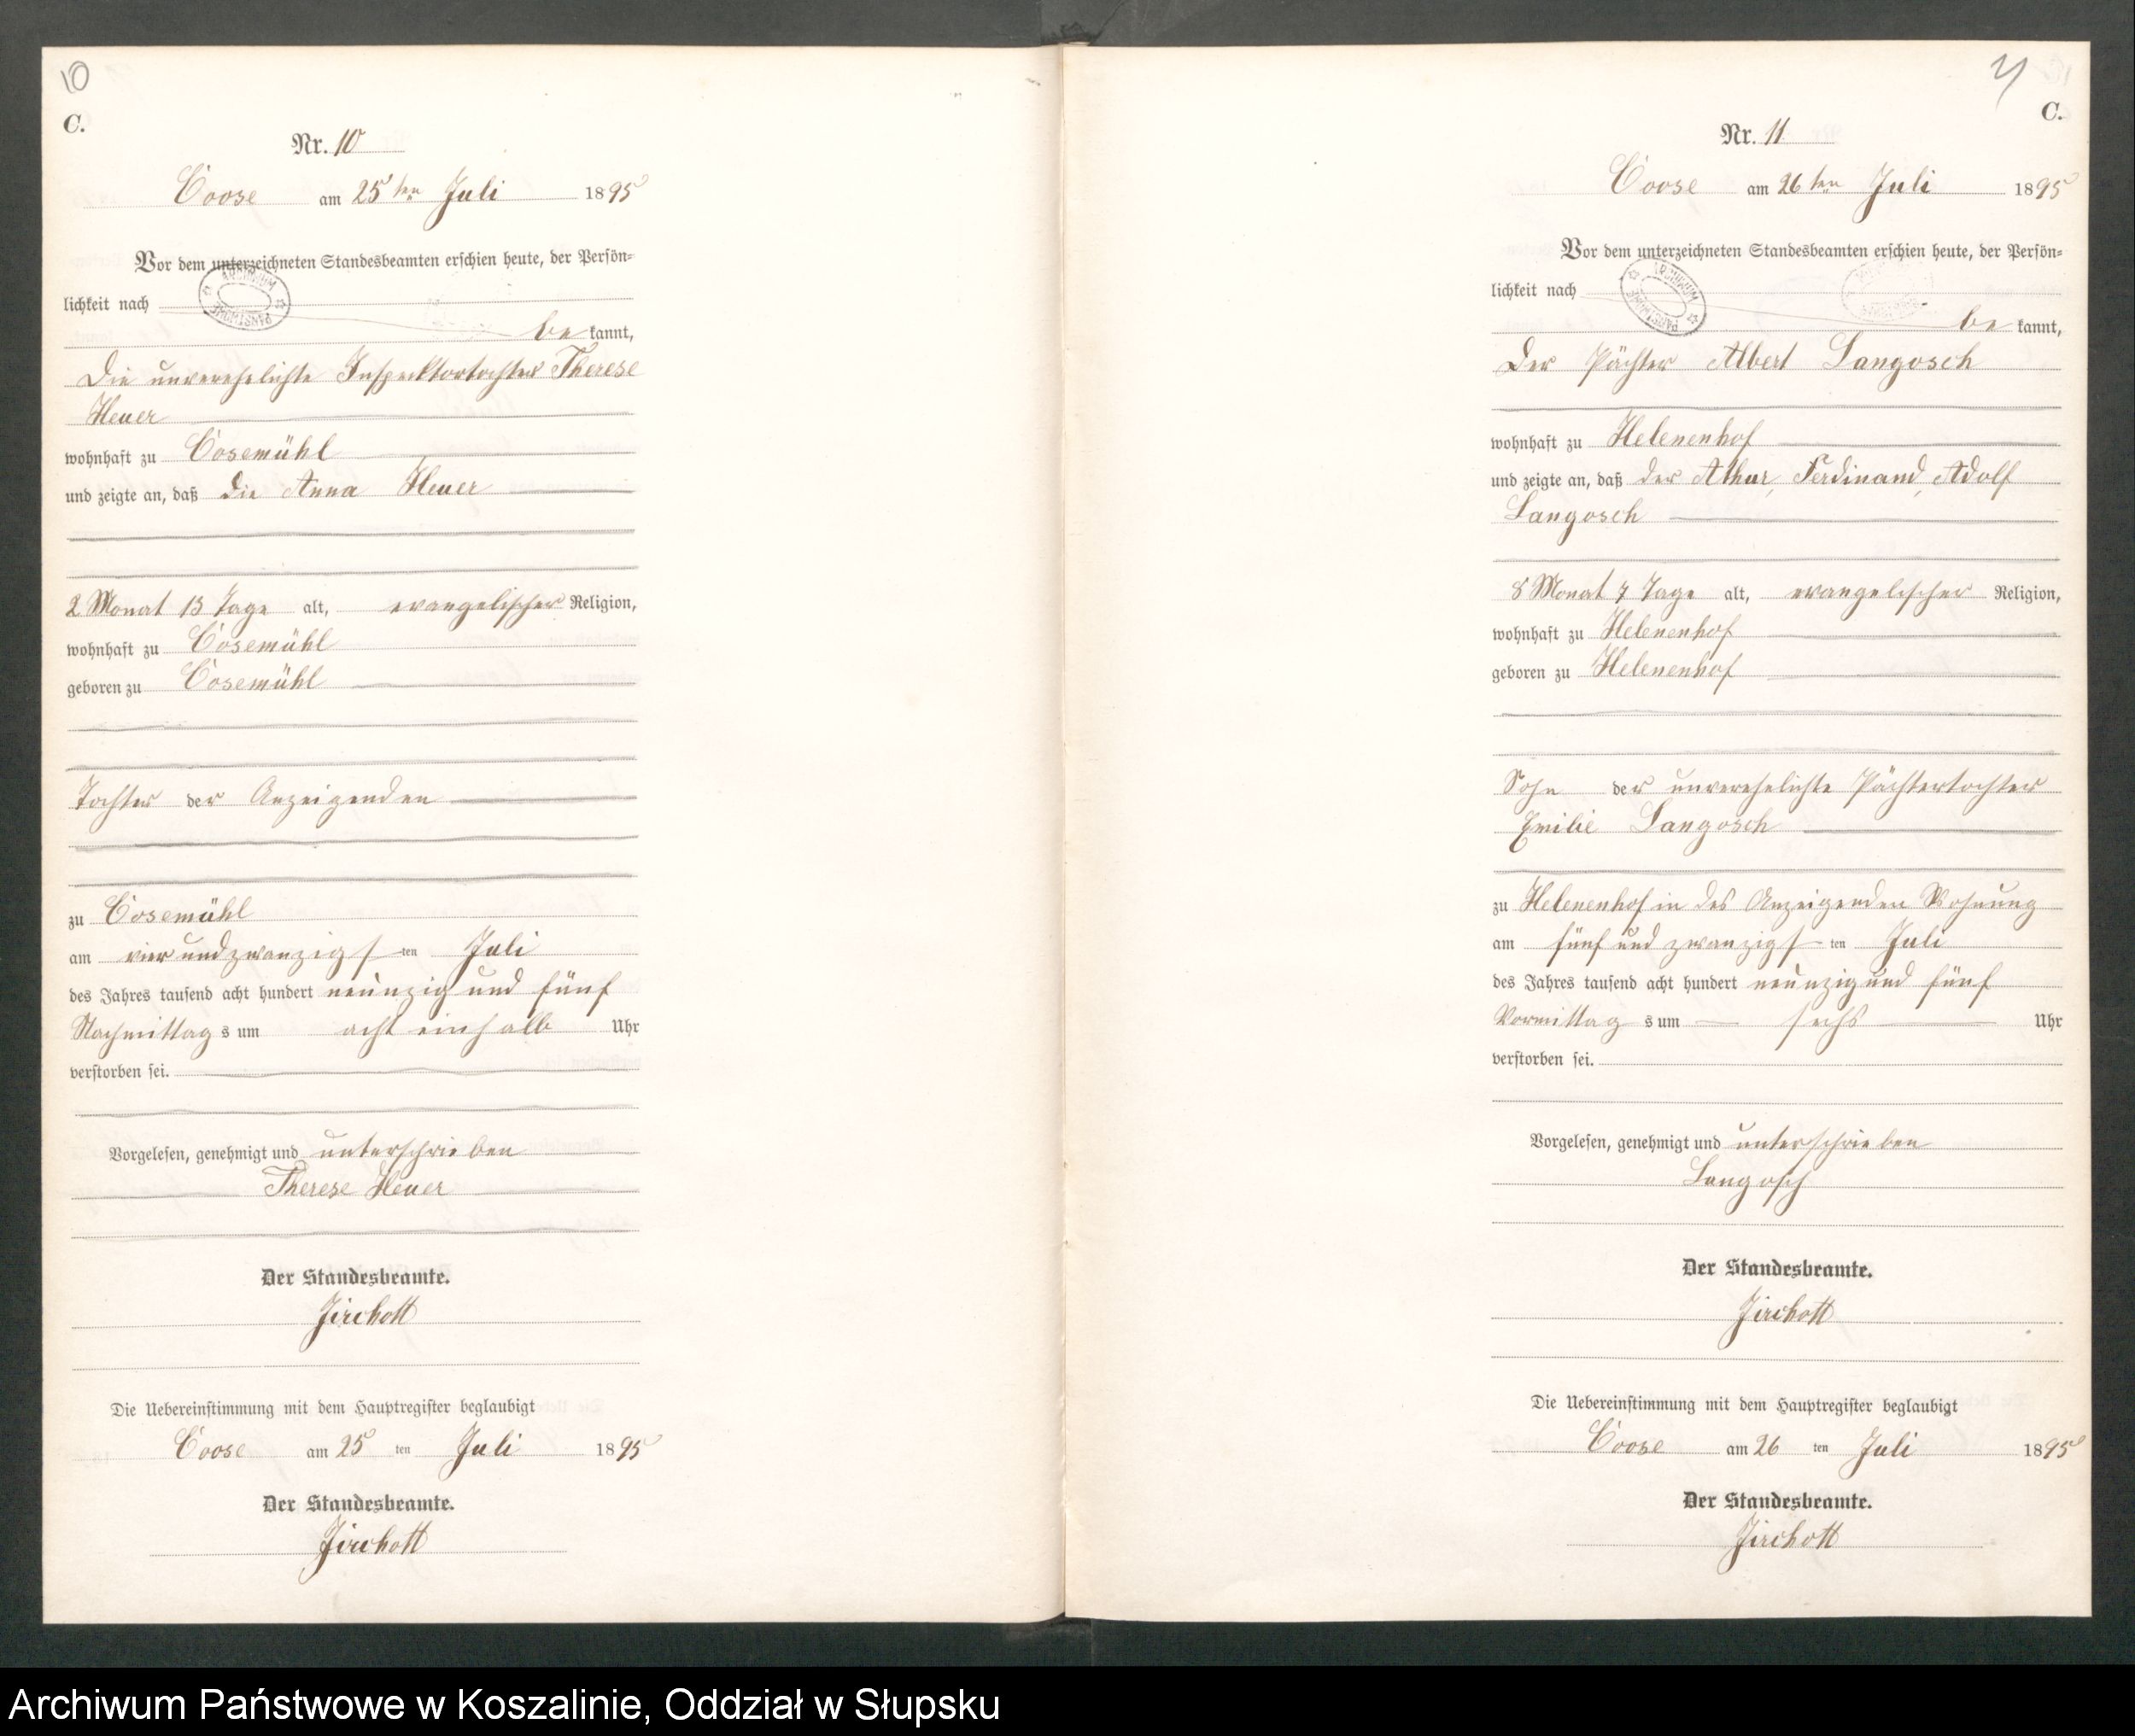 10
C.
Nr. 10
Coose am 25ten Juli 1895
Vor dem unterzeichneten Standesbeamten erschien heute, der Persön-
lichkeit nach
be kannt,
Die unverehelichte Inspektortochter Therese
Heuer
wohnhaft zu Cosemühl
und zeigte an, daß die Anna Heuer
2 Monat 13 Tage alt, evangelischer Religion,
wohnhaft zu Cosemühl
geboren zu Cosemühl
Tochter der Anzeigenden
zu Cosemühl
am vier und zwanzigsten Juli
des Jahres tausend acht hundert neunzig und fünf
Nachmittags um acht einhalb Uhr
verstorben sei.
Vorgelesen, genehmigt und unterschrieben
Therese Heuer
Der Standesbeamte.
Jirchott
Die Uebereinstimmung mit dem Hauptregister beglaubigt
Coose am 25ten Juli 1895
Der Standesbeamte.
Jirchott
C.
Nr. 11
Coose am 26ten Juli 1895
Vor dem unterzeichneten Standesbeamten erschien heute, der Persön-
lichkeit nach
be kannt,
Der Pächter Albert Langosch
wohnhaft zu Helenenhof
und zeigte an, daß der Athur, Ferdinand, Adolf
Langosch
8 Monat 7 Tage alt, evangelischer Religion,
wohnhaft zu Helenenhof
geboren zu Helenenhof
Sohn der unverehelichte Pächtertochter
Emilie Langosch
zu Helenenhof in des Anzeigenden Wohnung
am fünf und zwanzigsten Juli
des Jahres tausend acht hundert neunzig und fünf
Vormittags um sechs Uhr
verstorben sei.
Vorgelesen, genehmigt und unterschrieben
Langosch
Der Standesbeamte.
Jirchott
Die Uebereinstimmung mit dem Hauptregister beglaubigt
Coose am 26ten Juli 1895
Der Standesbeamte.
Jirchott
Archiwum Państwowe w Koszalinie, Oddział w Słupsku